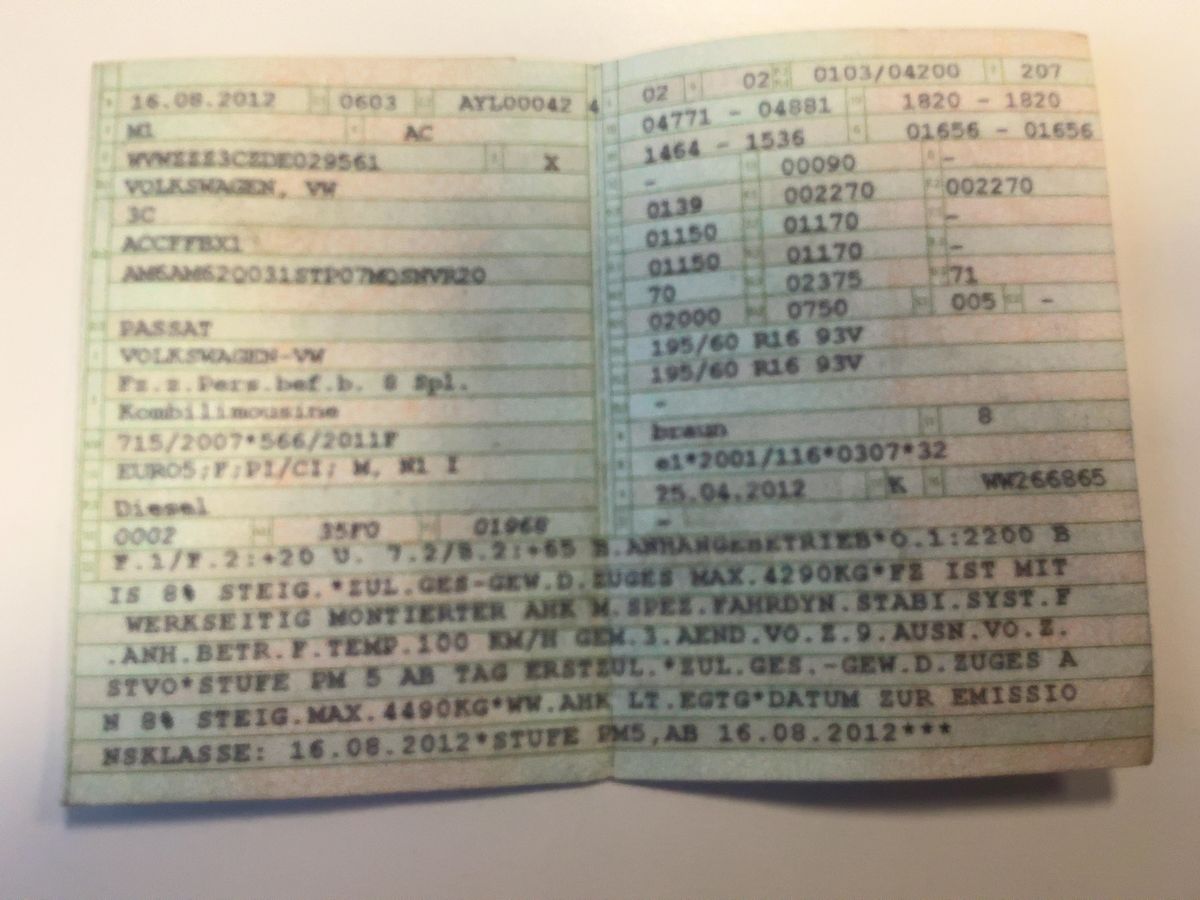 16.08.2012 0603 AYL00042 4
M1 AC
WVWZZZ3CZDE029561 X
VOLKSWAGEN, VW
3C
ACCFFBX1
AM6AM62Q031STP07MQSNVR20
PASSAT
VOLKSWAGEN-VW
Fz.z.Pers.bef.b. 8 Spl.
Kombilimousine
715/2007*566/2011F
EURO5;F;PI/CI; M, N1 I
Diesel
0002 35F0 01968
02 02 0103/04200 207
04771 - 04881 1820 - 1820
1464 - 1536 01656 - 01656
- 00090 -
0139 002270 002270
01150 01170 -
01150 01170 -
70 02375 71
02000 0750 005 -
195/60 R16 93V
195/60 R16 93V
-
braun 8
e1*2001/116*0307*32
25.04.2012 K WW266865
-
F.1/F.2:+20 U. 7.2/8.2:+65 B.ANHANGEBETRIEB*O.1:2200 B
IS 8% STEIG.*ZUL.GES-GEW.D.ZUGES MAX.4290KG*FZ IST MIT
WERKSEITIG MONTIERTER AHK M.SPEZ.FAHRDYN.STABI.SYST.F
.ANH.BETR.F.TEMP.100 KM/H GEM.3.AEND.VO.Z.9.AUSN.VO.Z.
STVO*STUFE PM 5 AB TAG ERSTZUL.*ZUL.GES.-GEW.D.ZUGES A
N 8% STEIG.MAX.4490KG*WW.AHK LT.EGTG*DATUM ZUR EMISSIO
NSKLASSE: 16.08.2012*STUFE PM5,AB 16.08.2012***